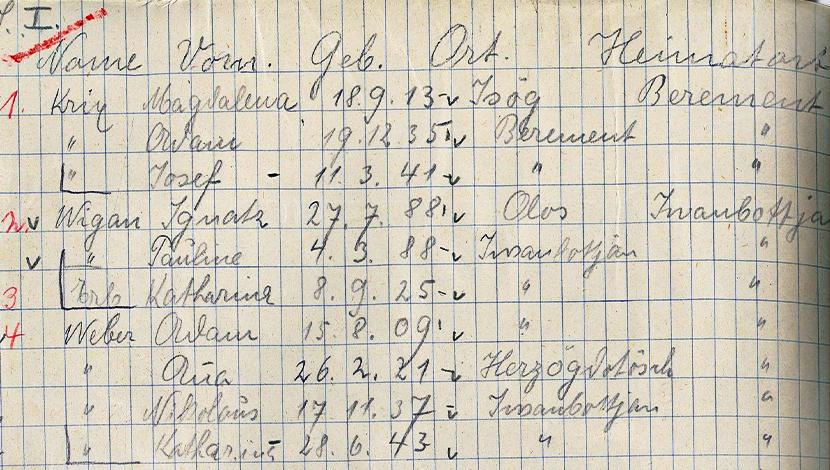 I.
Name Vorn. Geb. Ort. Heimatort
1. Krix Magdalena 18.9.13 Isög Berement
" Adam 19.12.35 Berement "
" Josef - 11.3.41 " "
2 Wigan Ignatz 27.7.88 Olos Iwanbottja
" Pauline 4.3.88 Iwanbottján "
3 Erb Katharina 8.9.25 " "
4 Weber Adam 15.8.09 " "
" Ana 26.2.21 "
" Nikolaus 17.11.37 Iwanbottjan "
" Katharina 28.6.43 " "